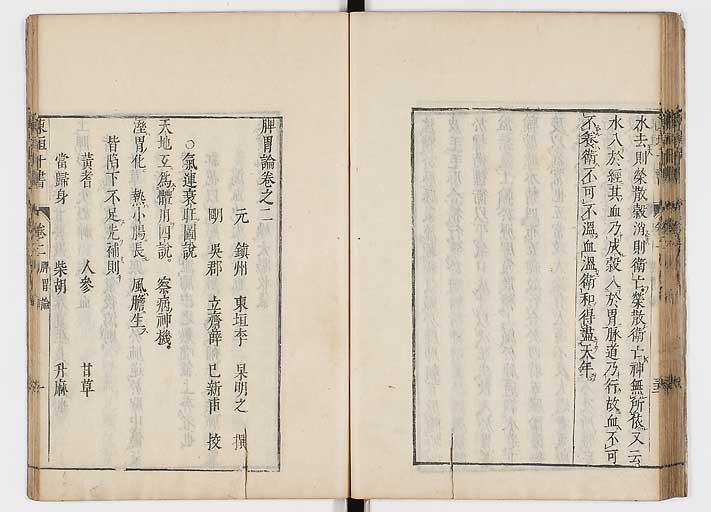 水去則榮散穀消則衛亡榮散衛亡神無所依又云
水入於經其血乃成穀入於胃脉道乃行故血不可
不養衛不可不溫血溫衛和得盡天年
脾胃論卷之二
元 鎮州 東垣李 杲明之 撰
明 吳郡 立齋薛 己新甫 挍
○氣運衰旺圖說
天地互為體用四說 察病神機
溼胃化 熱小腸長 風膽生
皆陷下不足先補則
黃耆 人參 甘草
當歸身 柴胡 升麻
東垣十書 卷二 脾胃論 一